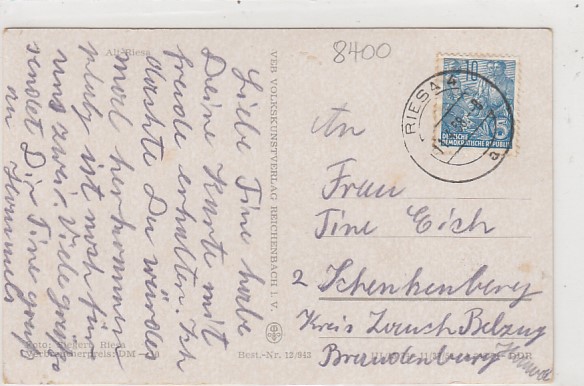 Alt-Riesa
8400
Liebe Tine habe
Deine Karte mit
freude erhalten. Ich
dachte Du würdes
mal herkommen
platz ist noch für
uns zwei. Viele grüße
sendet Dir Tine
an
VEB VOLKSKUNSTVERLAG REICHENBACH I. V.
Foto: Riesa
Verbraucherpreis: DM
Best.-Nr. 12/943
RIESA
10
DEUTSCHE
DEMOKRATISCHE REPUBLIK
An
Frau
Tine Eich
2 Schenkenberg
Kreis Zauch Belzig
Brandenburg
DDR